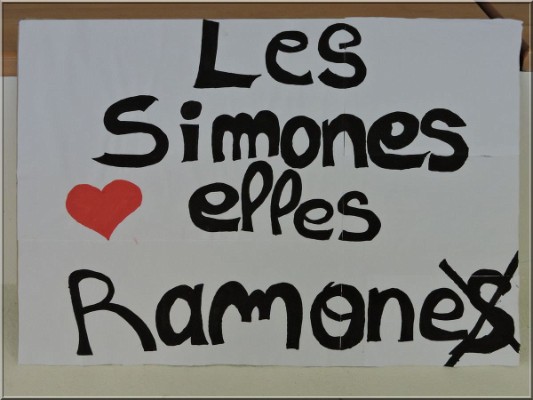 Les
Simones
elles
Ramones